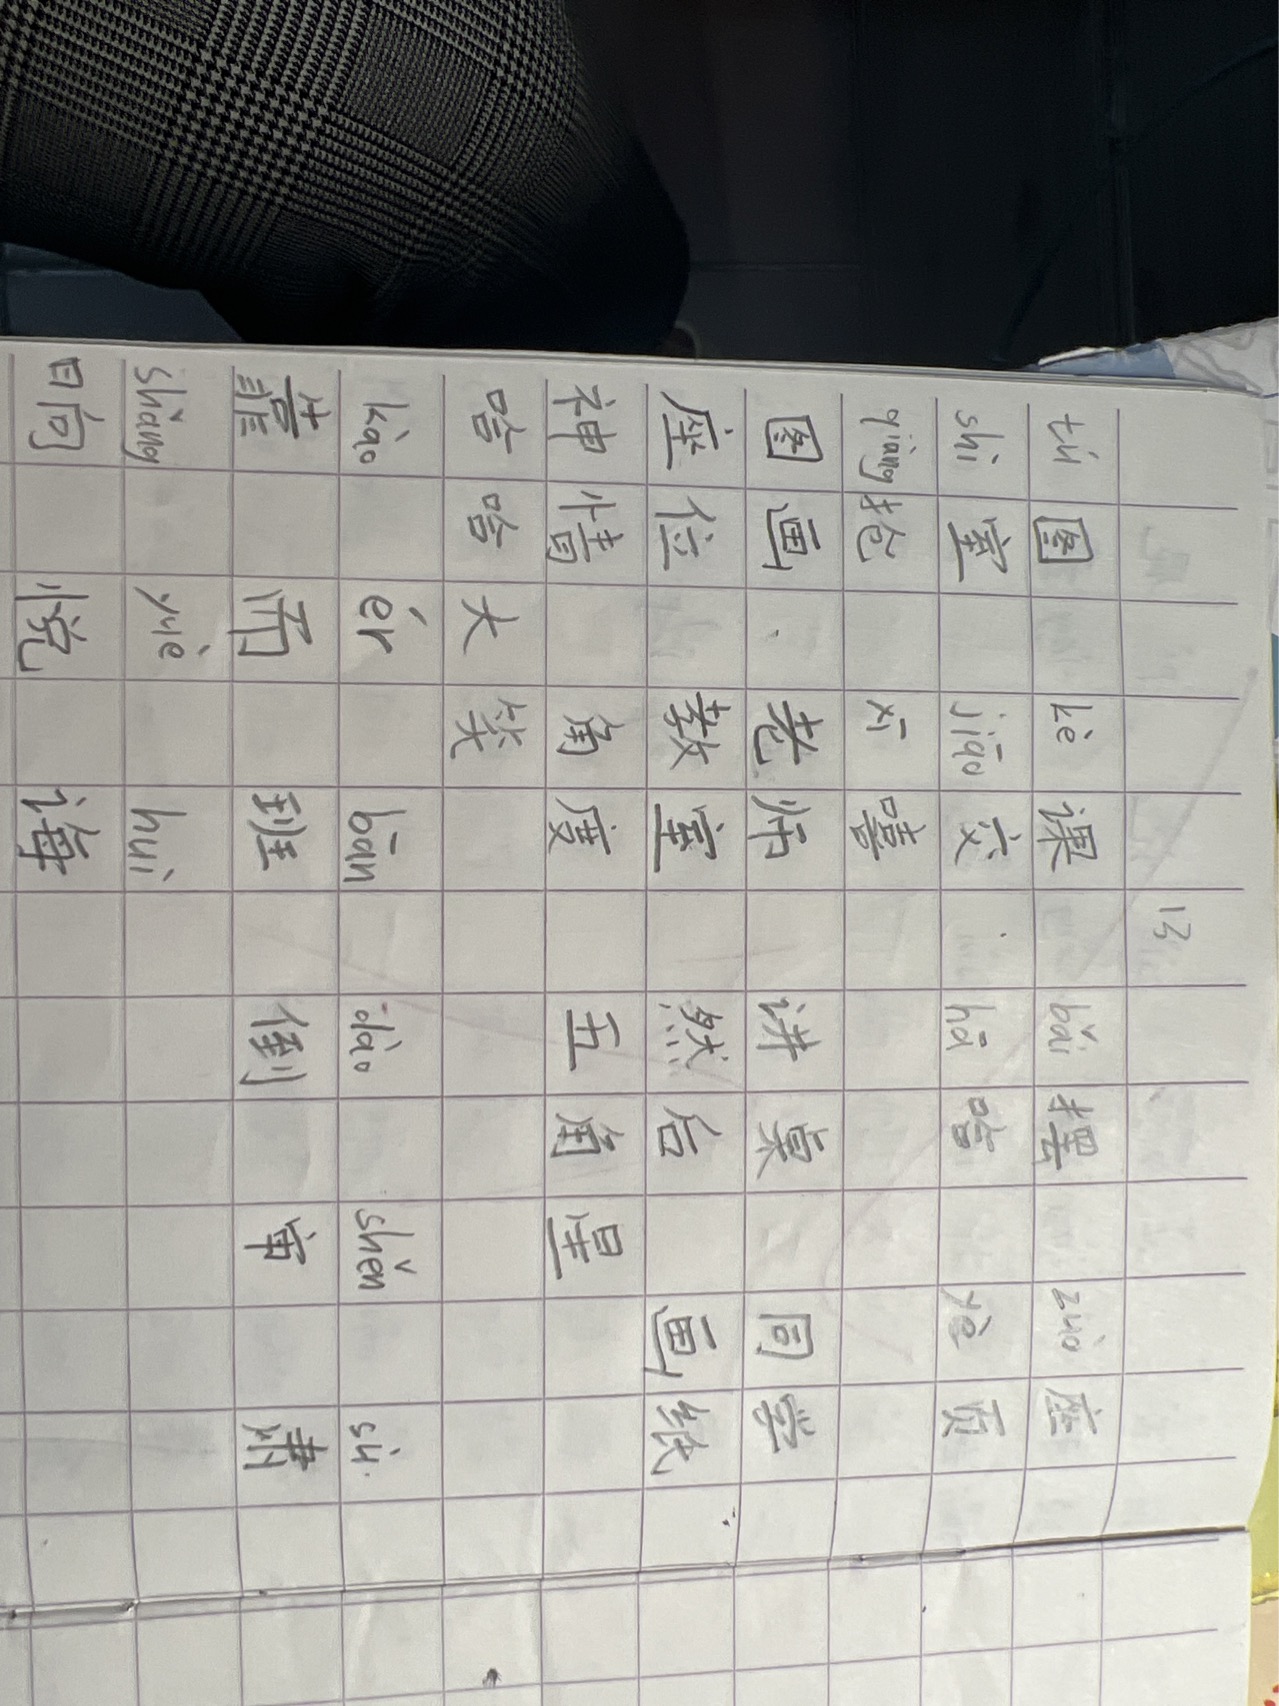 13
tú 图 kè 课 bǎi 摆 zuò 座
shì 室 jiāo 交 hā 哈 yè 页
qiǎng 抢 xī 嘻
图画 老师 讲桌 同学
座位 教室 然后 画纸
神情 角度 五角星
哈哈大笑
kào ér bān dào shěn sù
靠 而 班 倒 审 肃
shǎng yuè huì
晌 悦 诲